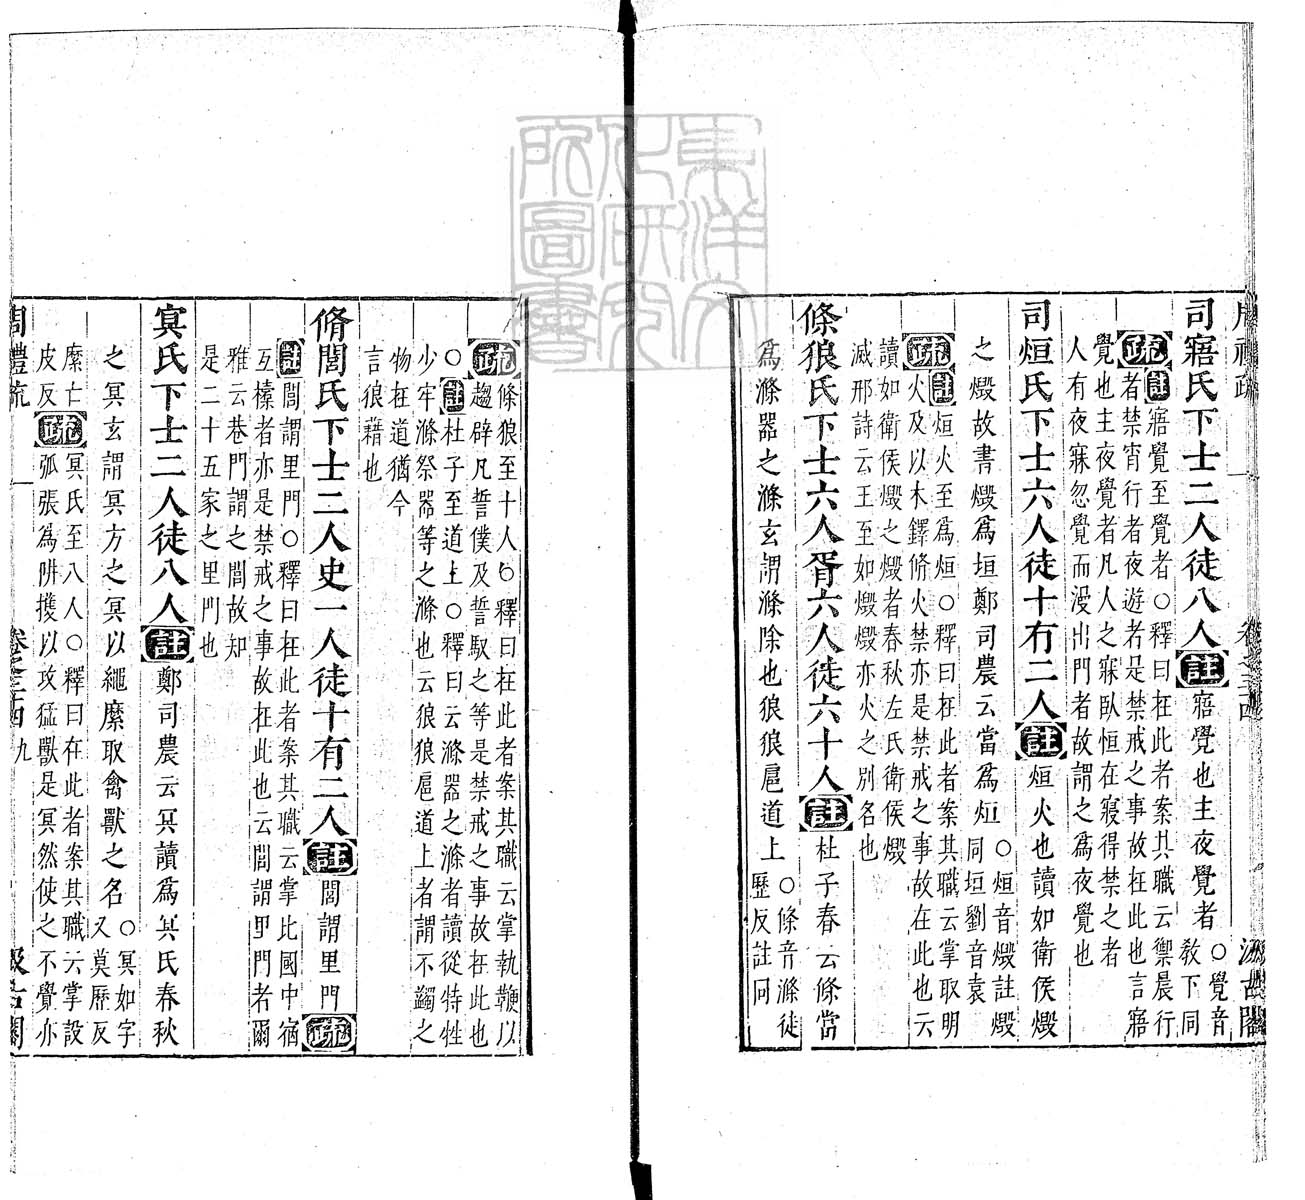 司寤氏下士二人徒八人註寤覺也主夜覺者○覺音敎下同
疏註寤覺至覺者○釋曰在此者案其職云禦晨行
者禁宵行者夜遊者是禁戒之事故在此也言寤
覺也主夜覺者凡人之寐臥恒在寢得禁之者
人有夜寐忽覺而漫出門者故謂之爲夜覺也
司烜氏下士六人徒十有二人註烜火也讀如衛侯燬
之燬故書燬爲垣鄭司農云當爲烜○烜音燬註燬同垣劉音袁
疏註烜火至爲烜○釋曰在此者案其職云掌取明
火及以木鐸脩火禁亦是禁戒之事故在此也云
讀如衛侯燬之燬者春秋左氏衛侯燬
滅邢詩云王至如燬燬亦火之別名也
條狼氏下士六人胥六人徒六十人註杜子春云條當
爲滌器之滌玄謂滌除也狼狼扈道上○條音滌徒歷反註同
疏條狼至十人○釋曰在此者案其職云掌執鞭以
趨辟凡誓僕及誓馭之等是禁戒之事故在此也
○註杜子至道上○釋曰云滌器之滌者讀從特牲
少牢滌祭器等之滌也云狼狼扈道上者謂不蠲之
物在道猶今
言狼藉也
脩閭氏下士二人史一人徒十有二人註閭謂里門疏
註閭謂里門○釋曰在此者案其職云掌比國中宿
互㯓者亦是禁戒之事故在此也云閭謂里門者爾
雅云巷門謂之閭故知
是二十五家之里門也
冥氏下士二人徒八人註鄭司農云冥讀爲冥氏春秋
之冥玄謂冥方之冥以繩縻取禽獸之名○冥如字又莫歷反
縻亡皮反疏冥氏至八人○釋曰在此者案其職云掌設
弧張爲阱擭以攻猛獸是冥然使之不覺亦
周禮疏 卷之三十四 九 汲古閣